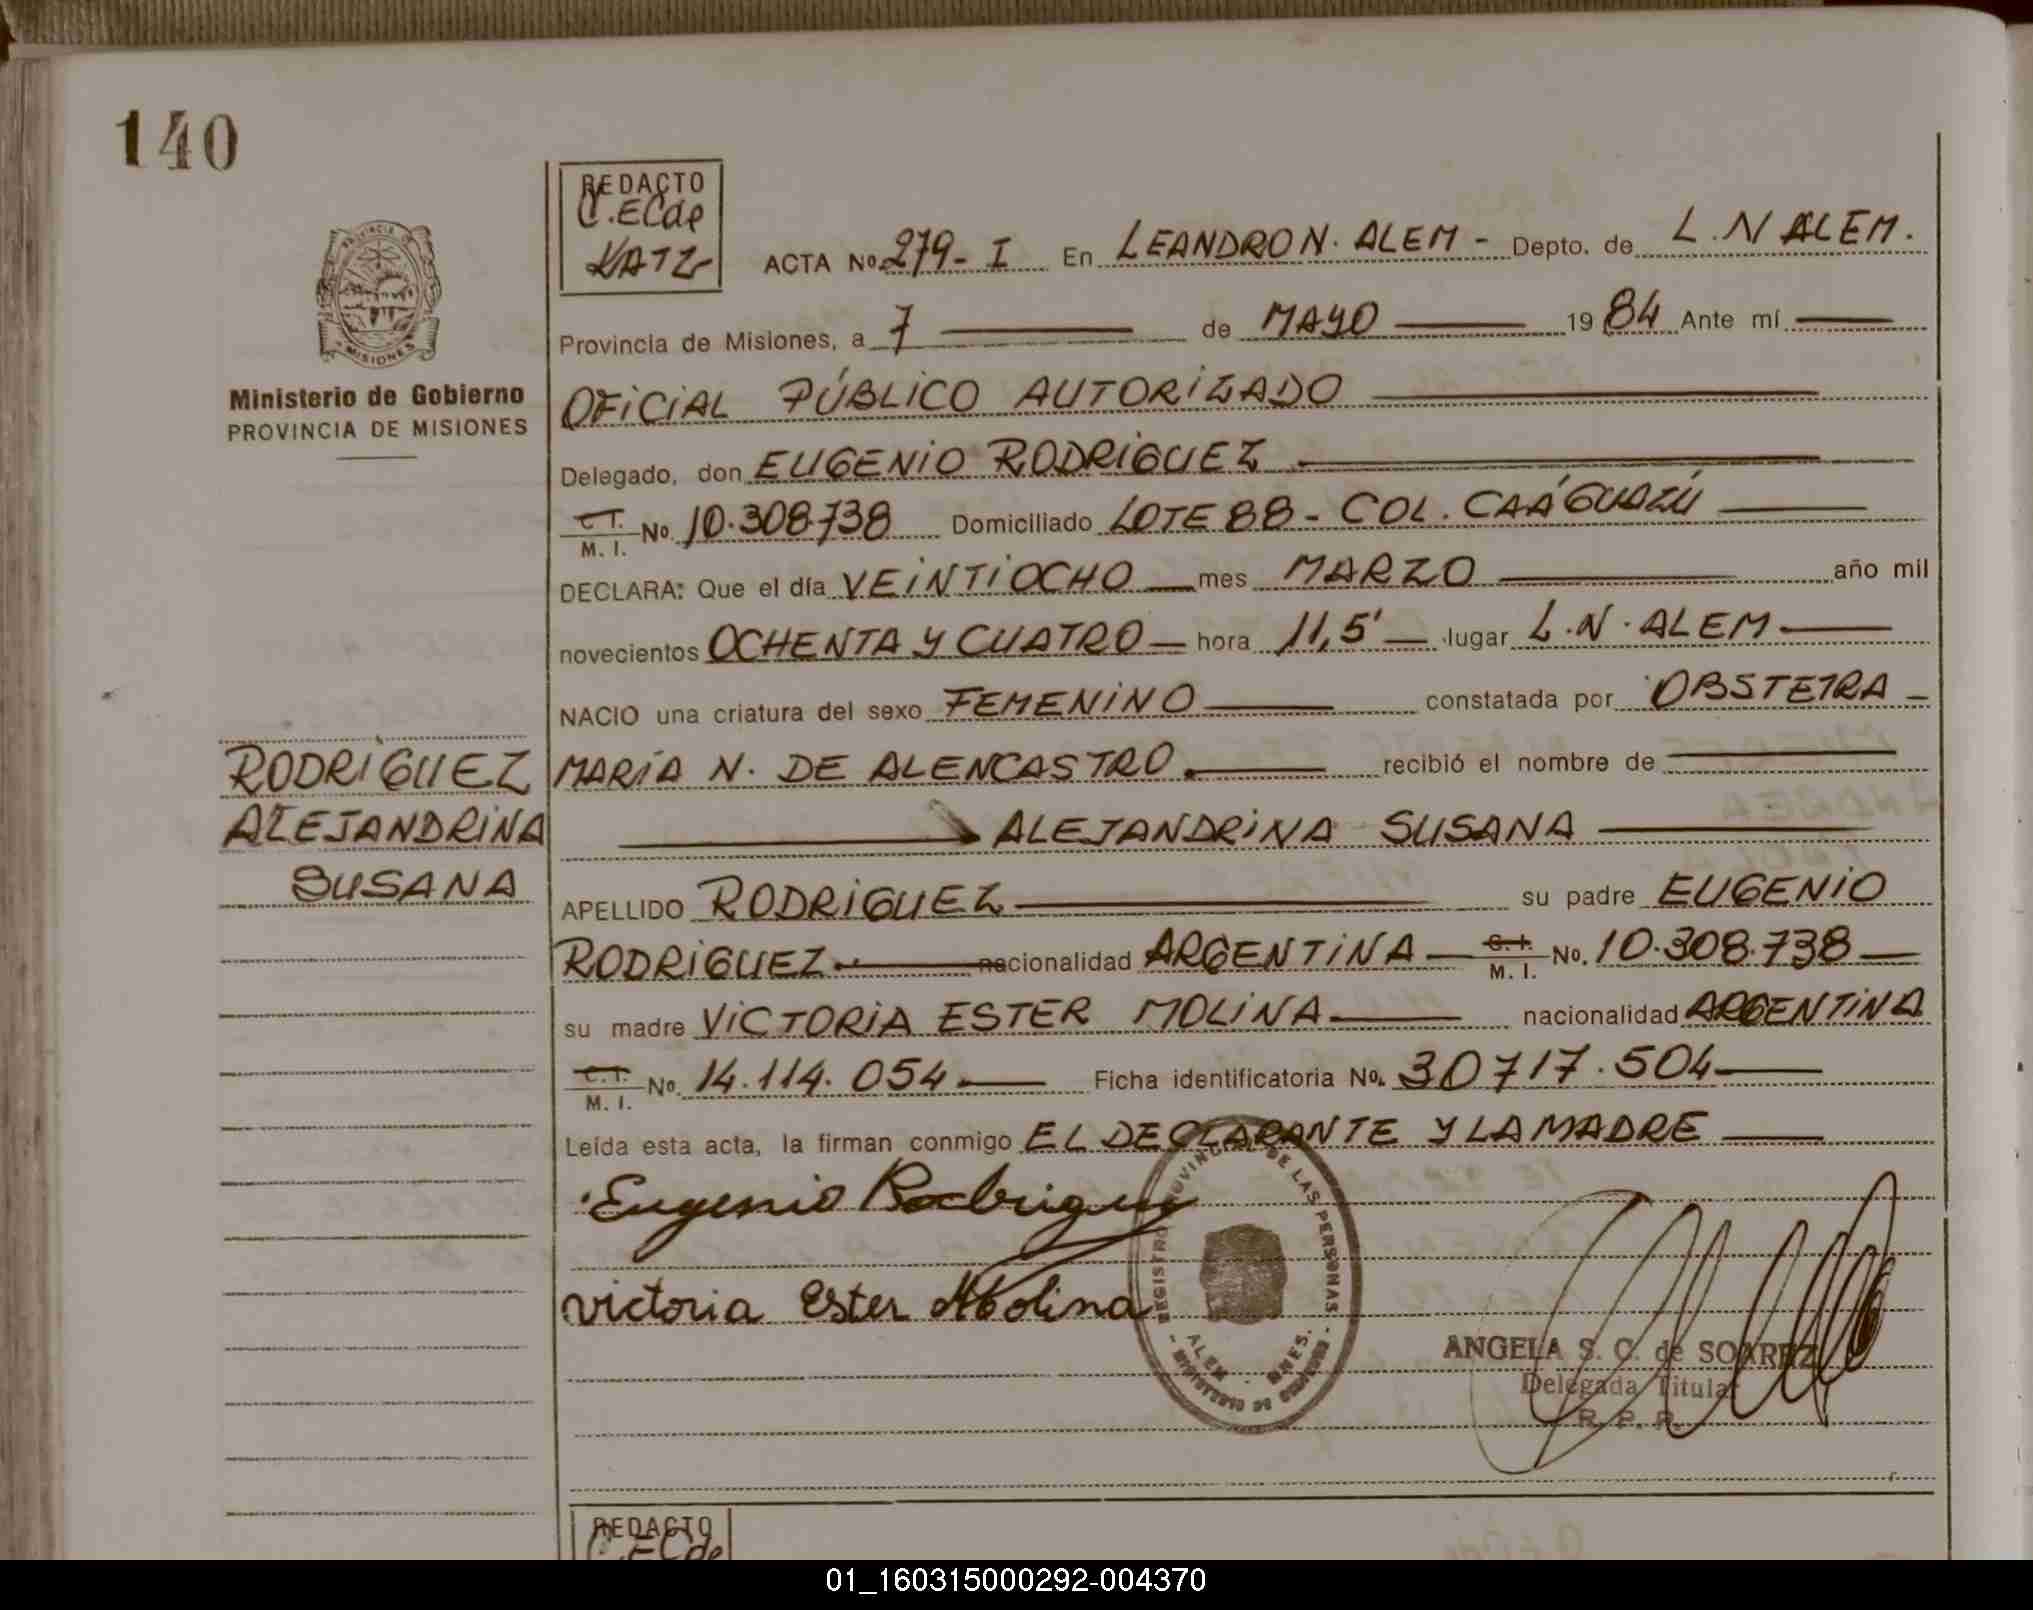 140
PROVINCIA DE
MISIONES
Ministerio de Gobierno
PROVINCIA DE MISIONES
RODRIGUEZ
ALEJANDRINA
SUSANA
REDACTO
C.ECde
KATZ
ACTA No. 279-I En LEANDRO N. ALEM - Depto. de L. N ALEM.
Provincia de Misiones, a 7 de MAYO 1984 Ante mí
OFICIAL PÚBLICO AUTORIZADO
Delegado, don EUGENIO RODRIGUEZ
C.I. M. I. No. 10.308.738 Domiciliado LOTE 88 - COL. CAÁGUAZÚ
DECLARA: Que el día VEINTIOCHO mes MARZO año mil
novecientos OCHENTA Y CUATRO hora 11,5' lugar L.N. ALEM
NACIO una criatura del sexo FEMENINO constatada por OBSTETRA
MARÍA N. DE ALENCASTRO. recibió el nombre de
ALEJANDRINA SUSANA
APELLIDO RODRIGUEZ su padre EUGENIO
RODRIGUEZ nacionalidad ARGENTINA C.I. M. I. No. 10.308.738
su madre VICTORIA ESTER MOLINA nacionalidad ARGENTINA
C.I. M. I. No. 14.114.054 Ficha identificatoria No. 30717.504
Leída esta acta, la firman conmigo EL DECLARANTE Y LA MADRE
Eugenio Rodriguez
victoria Ester Molina
REGISTRO PROVINCIAL DE LAS PERSONAS
ALEM - MNES.
MINISTERIO DE GOBIERNO
ANGELA S. C. de SOAREZ
Delegada Titular
R. P. P.
REDACTO
C.ECde
01_160315000292-004370